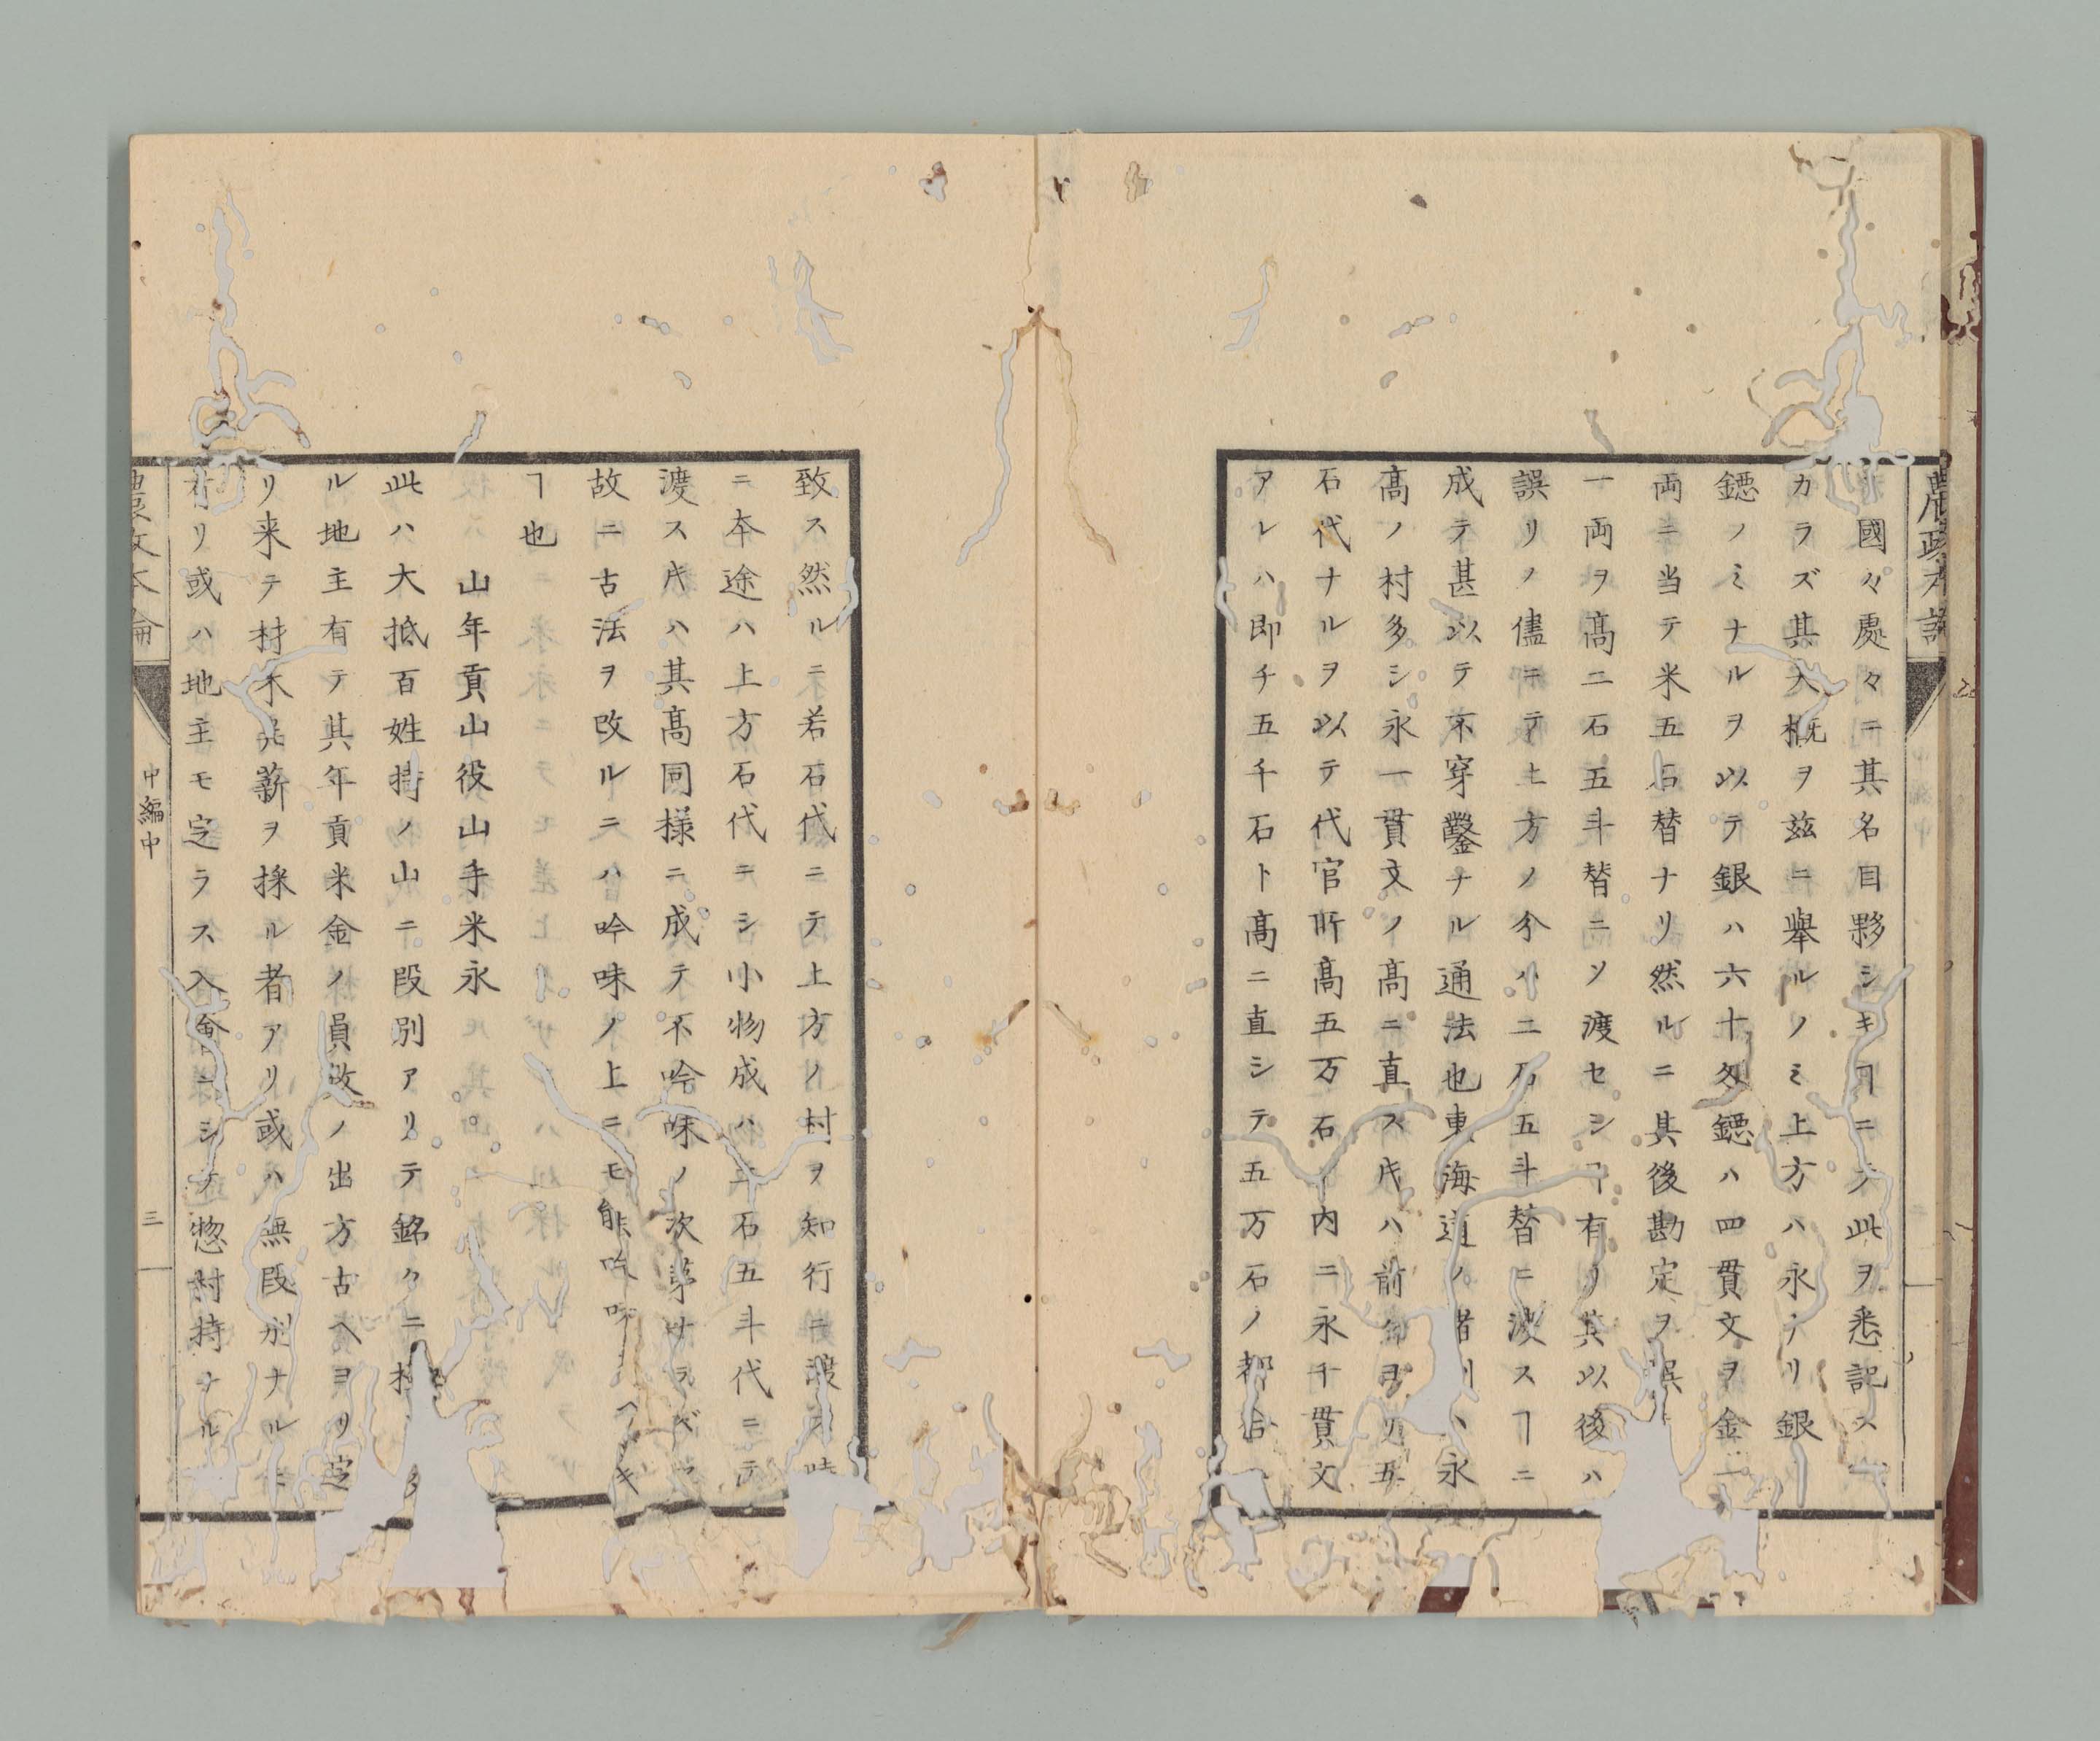 農政本論
國々處々ニ其名目夥シキヿニテ此ヲ悉記ス
カラズ其大概ヲ玆ニ擧ルノミ上方ハ永ナリ銀
鐚ノミナルヲ以テ銀ハ六十匁鐚ハ四貫文ヲ金一
両ニ当テ米五石替ナリ然ルニ其後勘定ヲ誤
一両ヲ髙二石五斗替ニソ渡セシヿ有リ其以後ハ
誤リノ儘ニテ上方ノ分ハ二石五斗替ニ渡スヿニ
成テ甚以テ不穿鑿ナル通法也東海道ノ諸州ハ永
髙ノ村多シ永一貫文ノ髙ニ直ス片ハ前命ヨリ五
石代ナルヲ以テ代官所髙五万石ノ内ニ永千貫文
アレハ即チ五千石ト髙ニ直シテ五万石ノ都合
致ス然ルニ若石代ニテ上方ノ村ヲ知行ニ渡ス時
ニ本途ハ上方石代ニシ小物成ハ二石五斗代ニテ
渡ス片ハ其髙同様ニ成テ不吟味ノ次第サラバ
故ニ古法ヲ改ルニハ吟味ノ上ニモ能吟味
ヿ也
山年貢山役山手米永
此ハ大抵百姓持ノ山ニ段別アリテ銘々ニ
ル地主有テ其年貢米金ノ員数ノ出方古ヘヨリ定
リ来テ材木并薪ヲ採ル者アリ或ハ無段別ナル
有リ或ハ地主モ定ラス入會ニシテ惣村持ナル
農政本論
中編中
三